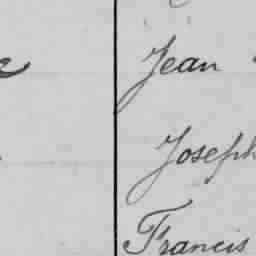 Jean
Joseph
Francis